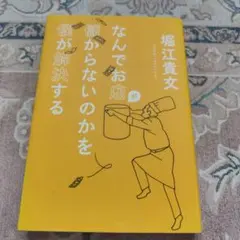 堀江貴文
なんでお店が
儲からないのかを
僕が解決する